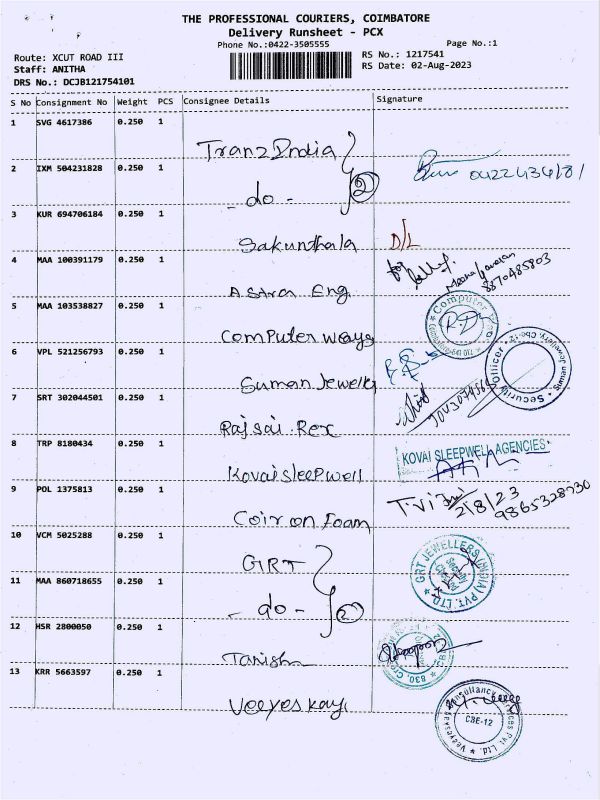 THE PROFESSIONAL COURIERS, COIMBATORE
Delivery Runsheet - PCX
Phone No.:0422-3505555
Page No.:1
Route: XCUT ROAD III
RS No.: 1217541
Staff: ANITHA
RS Date: 02-Aug-2023
DRS No.: DCJB121754101
S No Consignment No Weight PCS Consignee Details Signature
1 SVG 4617386 0.250 1
TranzIndia
2 IXM 504231828 0.250 1
- do - 2
3 KUR 694706184 0.250 1
Sakunthala D/L
4 MAA 100391179 0.250 1
Astra Eng 8870485803
5 MAA 103538827 0.250 1
Computer ways
6 VPL 521256793 0.250 1
Suman Jewells
Security Officer
7 SRT 302044501 0.250 1
Rajsai Rex
8 TRP 8180434 0.250 1
KOVAI SLEEPWELL AGENCIES
Kovai sleepwell
9 POL 1375813 0.250 1
2/8/23
9865328730
Coir on Foam
10 VCM 5025288 0.250 1
GRT
GRT JEWELLERS (INDIA) PVT. LTD.
11 MAA 860718655 0.250 1
- do - 2
12 HSR 2800050 0.250 1
Tanishq
13 KRR 5663597 0.250 1
Veeyes kay
CBE-12